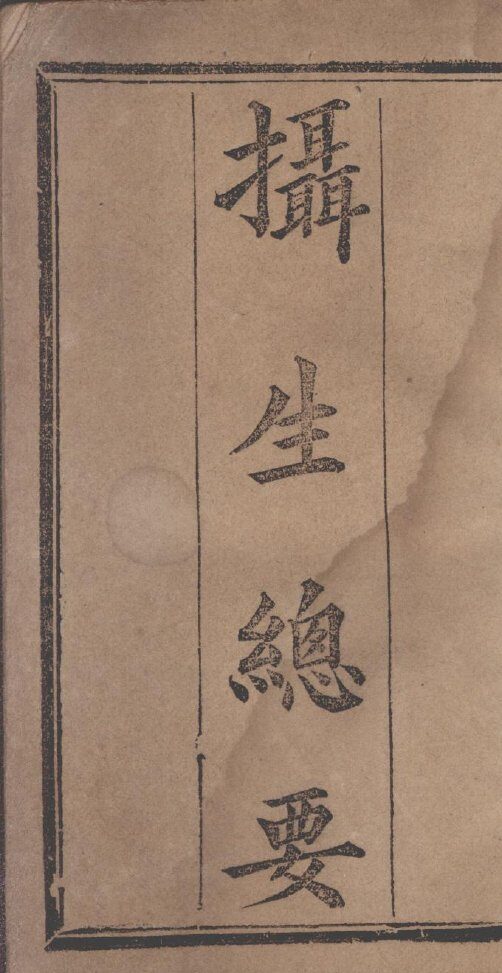 攝生總要